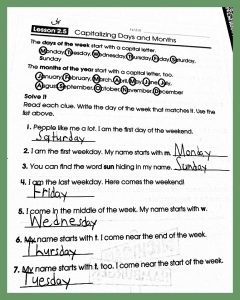 Lesson 2.5 Capitalizing Days and Months
The days of the week start with a capital letter.
Monday, Tuesday, Wednesday, Thursday, Friday, Saturday,
Sunday
The months of the year start with a capital letter, too.
January, February, March, April, May, June, July,
August, September, October, November, December
Solve It
Read each clue. Write the day of the week that matches it. Use the
list above.
1. People like me a lot. I am the first day of the weekend.
Saturday
2. I am the first weekday. My name starts with m. Monday
3. You can find the word sun hiding in my name. Sunday
4. I am the last weekday. Here comes the weekend!
Friday
5. I come in the middle of the week. My name starts with w.
Wednesday
6. My name starts with t. I come near the end of the week.
Thursday
7. My name starts with t, too. I come near the start of the week.
Tuesday